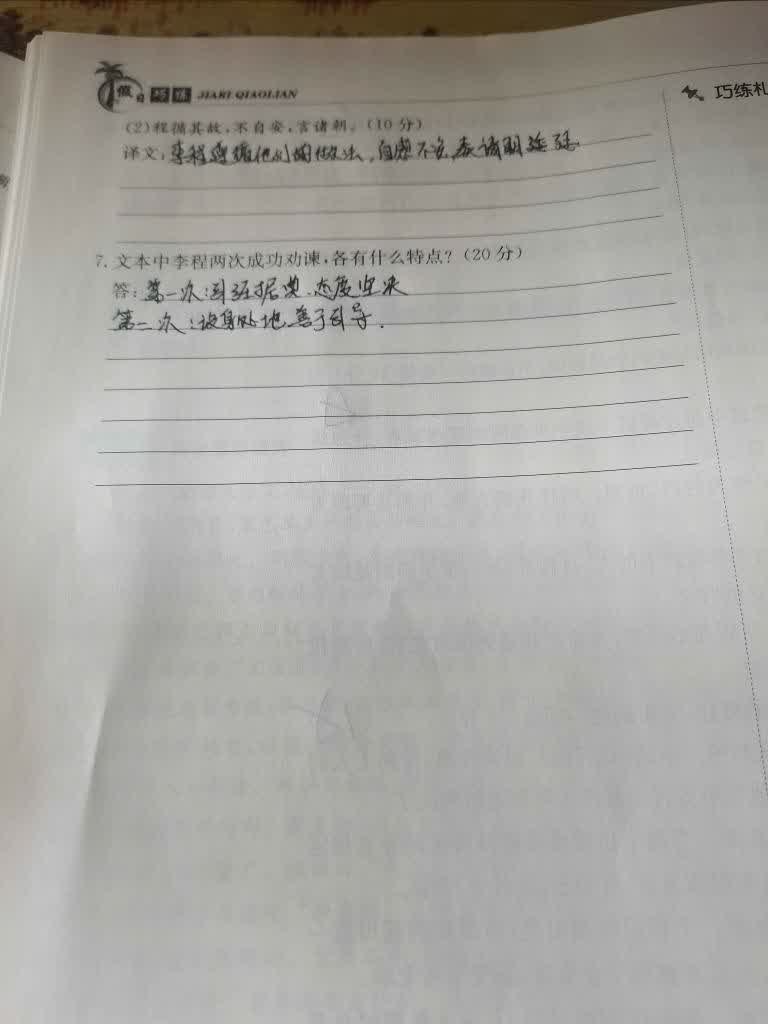 假日巧练 JIARI QIAOLIAN
巧练札
(2)程循其故,不自安,言诸朝。(10分)
译文:李程遵循他们的做法,自感不安,奏请朝廷
7.文本中李程两次成功劝谏,各有什么特点?(20分)
答:第一次:引经据典、态度坚决
第二次:设身处地、善于引导.